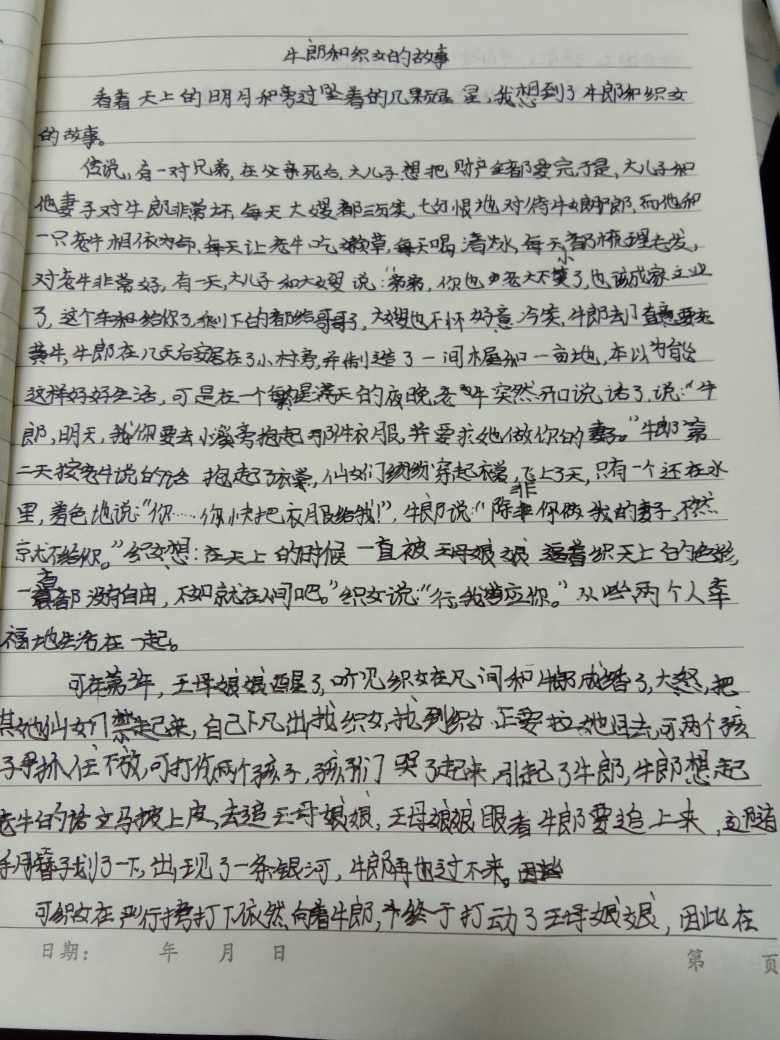 牛郎和织女的故事
看着天上的明月和旁边坠着的几颗星星,我想到了牛郎和织女
的故事。
传说,有一对兄弟,在父亲死后,大儿子想把财产全都要完于是,大儿子和
他妻子对牛郎非常坏,每天大嫂都 对待牛郎,而他和
一只老牛相依为命,每天让老牛吃嫩草,每天喝清水,每天都梳理毛发,
对老牛非常好,有一天,大儿子和大嫂说:“弟弟,你也老大不小了,也该成家立业
了,这个车和 给你了,剩下的都给哥哥了,大嫂也不怀好意冷笑,牛郎去了 要走
黄牛,牛郎在几天后安居在了小村旁,并制造了一间小屋和一亩地,本以为能
这样好好生活,可是在一个繁星满天的夜晚老牛突然开口说话了,说:“牛
郎,明天,我你要去小溪旁抱起那件衣服,并要求她做你的妻子。”牛郎第
二天按老牛说的话 抱起了衣裳,仙女们纷纷穿起衣裳,飞上了天,只有一个还在水
里,羞色地说:“你……你快把衣服给我!”,牛郎说:“除非你做我的妻子,不然
就不给你。”织女想:在天上的时候一直被王母娘娘逼着织天上的色彩,
一直都没有自由,不如就在人间吧。”织女说:“行,我答应你。”从些两个人幸
福地生活在一起。
可在第3年,王母娘娘酒醒了,听见织女在凡间和牛郎成婚了,大怒,把
其他仙女们禁起来,自己下凡出找织女,找到织女正要拉她回去,可两个孩
子寻抓住不放,可打伤两个孩子,孩子们哭了起来,引起了牛郎,牛郎想起
老牛的话立马披上皮,去追王母娘娘,王母娘娘眼看牛郎要追上来,
手用簪子划了一下,出现了一条银河,牛郎再也过不来。
可织女在严行拷打下依然向着牛郎,终于打动了王母娘娘,因此在
日期: 年 月 日 第 页